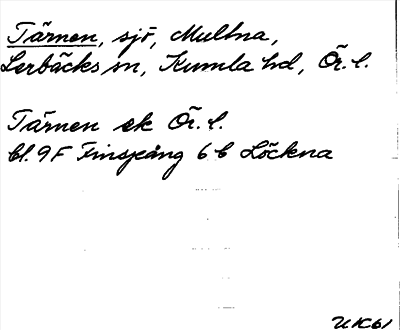 Tärnen, sjö, Multna,
Lerbäcks sn, Kumla hd, Ör. l.
Tärnen ek Ör. l.
bl. 9F Finspång 6b Löckna
UK61